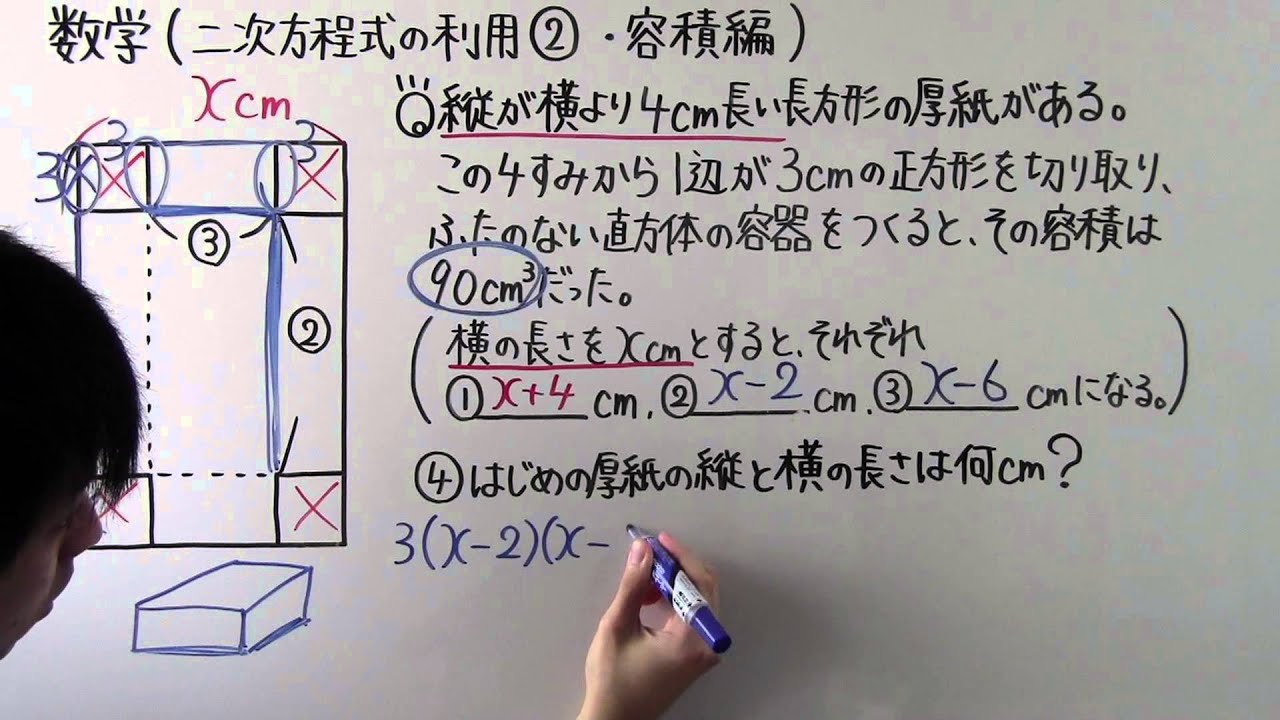 数学(二次方程式の利用②・容積編)
xcm
3 3
3
③
②
Q縦が横より4cm長い長方形の厚紙がある。
この4すみから1辺が3cmの正方形を切り取り、
ふたのない直方体の容器をつくると、その容積は
90cm³だった。
(横の長さをxcmとすると、それぞれ
①x+4cm、②x-2cm、③x-6cmになる。)
④はじめの厚紙の縦と横の長さは何cm?
3(x-2)(x-